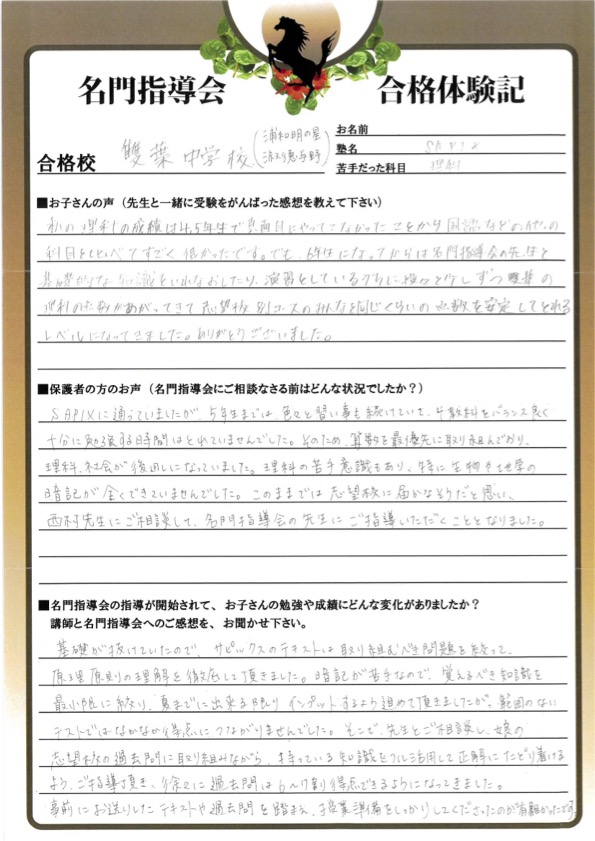 名門指導会 合格体験記
合格校 雙葉中学校 (浦和明の星
淑徳与野)
お名前
塾名 SAPIX
苦手だった科目 理科
■お子さんの声（先生と一緒に受験をがんばった感想を教えて下さい）
私の理科の成績は4,5年生で真面目にやってこなかったことから国語などの他の
科目とくらべてすごく低かったです。でも、6年生になってからは名門指導会の先生と
基礎的な知識をいれなおしたり、演習をしているうちに少しずつ
理科の点数があがってきて志望校別コースのみんなと同じくらいの点数を安定してとれる
レベルになってきました。ありがとうございました。
■保護者の方のお声（名門指導会にご相談なさる前はどんな状況でしたか？）
SAPIXに通っていましたが、5年生までは色々と習い事も続けていて、4教科をバランス良く
十分に勉強する時間はとれていませんでした。そのため、算数を最優先に取り組んでおり、
理科、社会が後回しになっていました。理科の苦手意識もあり、特に生物や地学の
暗記が全くできていませんでした。このままでは志望校に届かなそうだと思い、
西村先生にご相談して、名門指導会の先生にご指導いただくこととなりました。
■名門指導会の指導が開始されて、お子さんの勉強や成績にどんな変化がありましたか？
講師と名門指導会へのご感想を、お聞かせ下さい。
基礎が抜けていたので、サピックスのテキストは取り組むべき問題を絞って、
原理原則の理解を徹底して頂きました。暗記が苦手なので、覚えるべき知識を
最小限に絞り、夏までに出来る限りインプットするよう進めて頂きましたが、範囲のない
テストではなかなか得点につながりませんでした。そこで、先生とご相談し、娘の
志望校の過去問に取り組みながら、持っている知識をフル活用して正解にたどり着ける
よう、ご指導頂き、徐々に過去問は6〜7割得点できるようになってきました。
事前にお送りしたテキストや過去問を踏まえ、授業準備をしっかりしてくださったのが有難かったです。